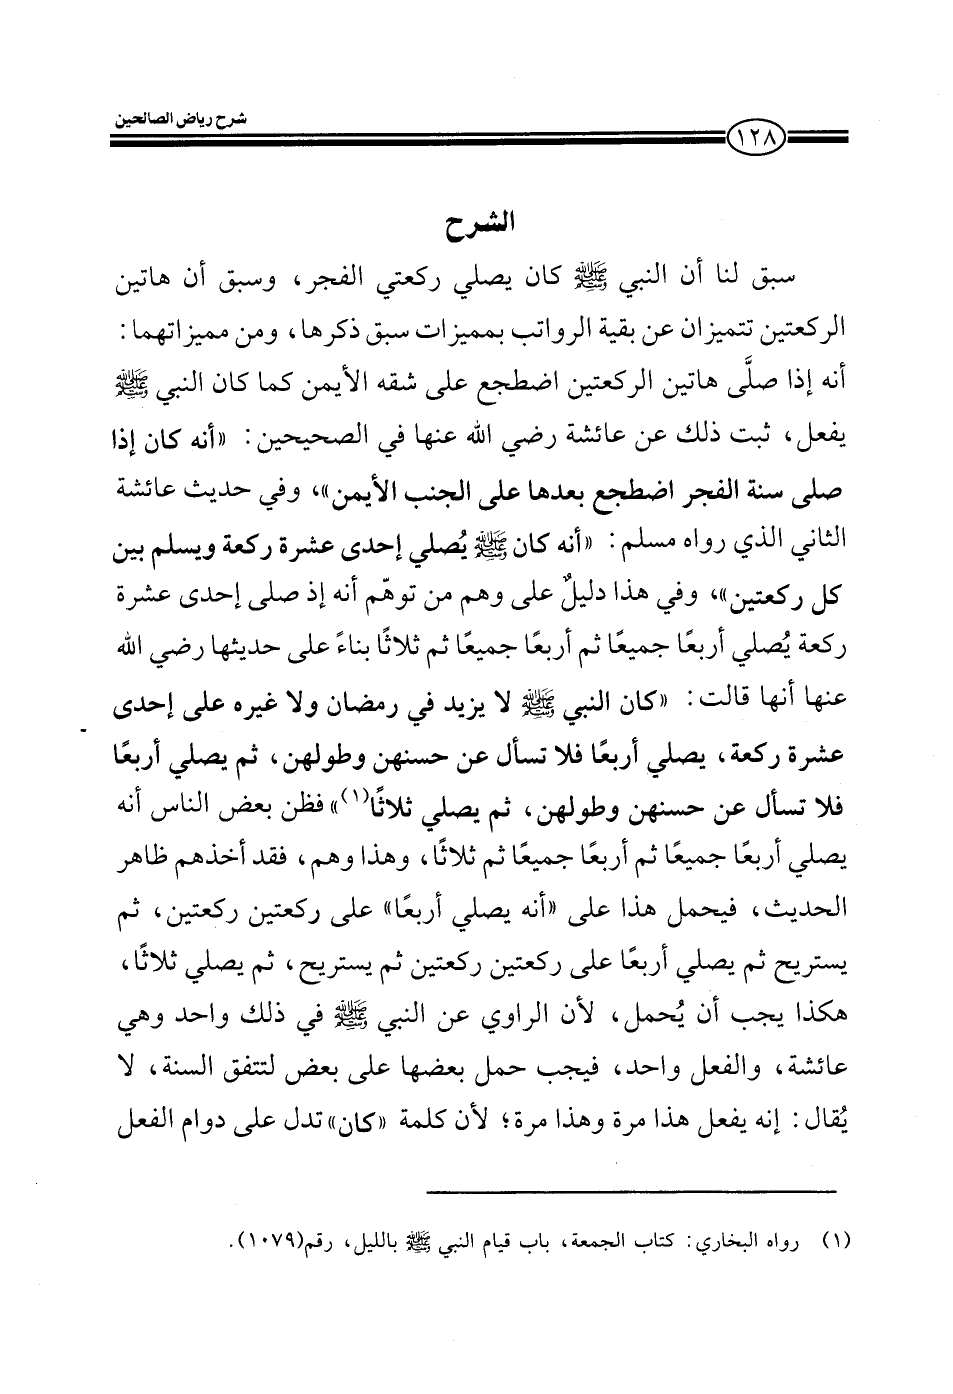 شرح رياض الصالحين
١٢٨
الشرح
سبق لنا أن النبي ﷺ كان يصلي ركعتي الفجر، وسبق أن هاتين
الركعتين تتميزان عن بقية الرواتب بمميزات سبق ذكرها، ومن مميزاتهما:
أنه إذا صلَّى هاتين الركعتين اضطجع على شقه الأيمن كما كان النبي ﷺ
يفعل، ثبت ذلك عن عائشة رضي الله عنها في الصحيحين: «أنه كان إذا
صلى سنة الفجر اضطجع بعدها على الجنب الأيمن»، وفي حديث عائشة
الثاني الذي رواه مسلم: «أنه كان ﷺ يُصلي إحدى عشرة ركعة ويسلم بين
كل ركعتين»، وفي هذا دليلٌ على وهم من توهّم أنه إذ صلى إحدى عشرة
ركعة يُصلي أربعًا جميعًا ثم أربعًا جميعًا ثم ثلاثًا بناءً على حديثها رضي الله
عنها أنها قالت: «كان النبي ﷺ لا يزيد في رمضان ولا غيره على إحدى
عشرة ركعة، يصلي أربعًا فلا تسأل عن حسنهن وطولهن، ثم يصلي أربعًا
فلا تسأل عن حسنهن وطولهن، ثم يصلي ثلاثًا(١)» فظن بعض الناس أنه
يصلي أربعًا جميعًا ثم أربعًا جميعًا ثم ثلاثًا، وهذا وهم، فقد أخذهم ظاهر
الحديث، فيحمل هذا على «أنه يصلي أربعًا» على ركعتين ركعتين، ثم
يستريح ثم يصلي أربعًا على ركعتين ركعتين ثم يستريح، ثم يصلي ثلاثًا،
هكذا يجب أن يُحمل، لأن الراوي عن النبي ﷺ في ذلك واحد وهي
عائشة، والفعل واحد، فيجب حمل بعضها على بعض لتتفق السنة، لا
يُقال: إنه يفعل هذا مرة وهذا مرة؛ لأن كلمة «كان» تدل على دوام الفعل
(١) رواه البخاري: كتاب الجمعة، باب قيام النبي ﷺ بالليل، رقم(١٠٧٩).